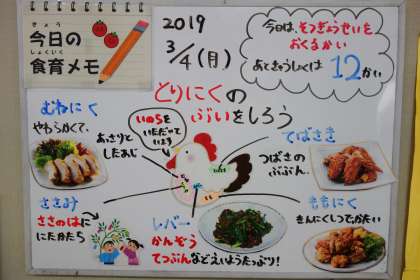 きょう
今日の
しょくいく
食育メモ
2019
3/4(月)
今日は、そつぎょうせいを
おくるかい
あときゅうしょくは 12かい
とりにくの
ぶいをしろう
むねにく
やわらかくて、
あっさりと
したあじ
いのちを
いただいて
いまう
てばさき
つばさの
ぶぶん。
ささみ
ささのはに
にたかたち
レバー
かんぞう
てつぶんなどえいようたっぷり!
ももにく
きんにくしつで、かたい